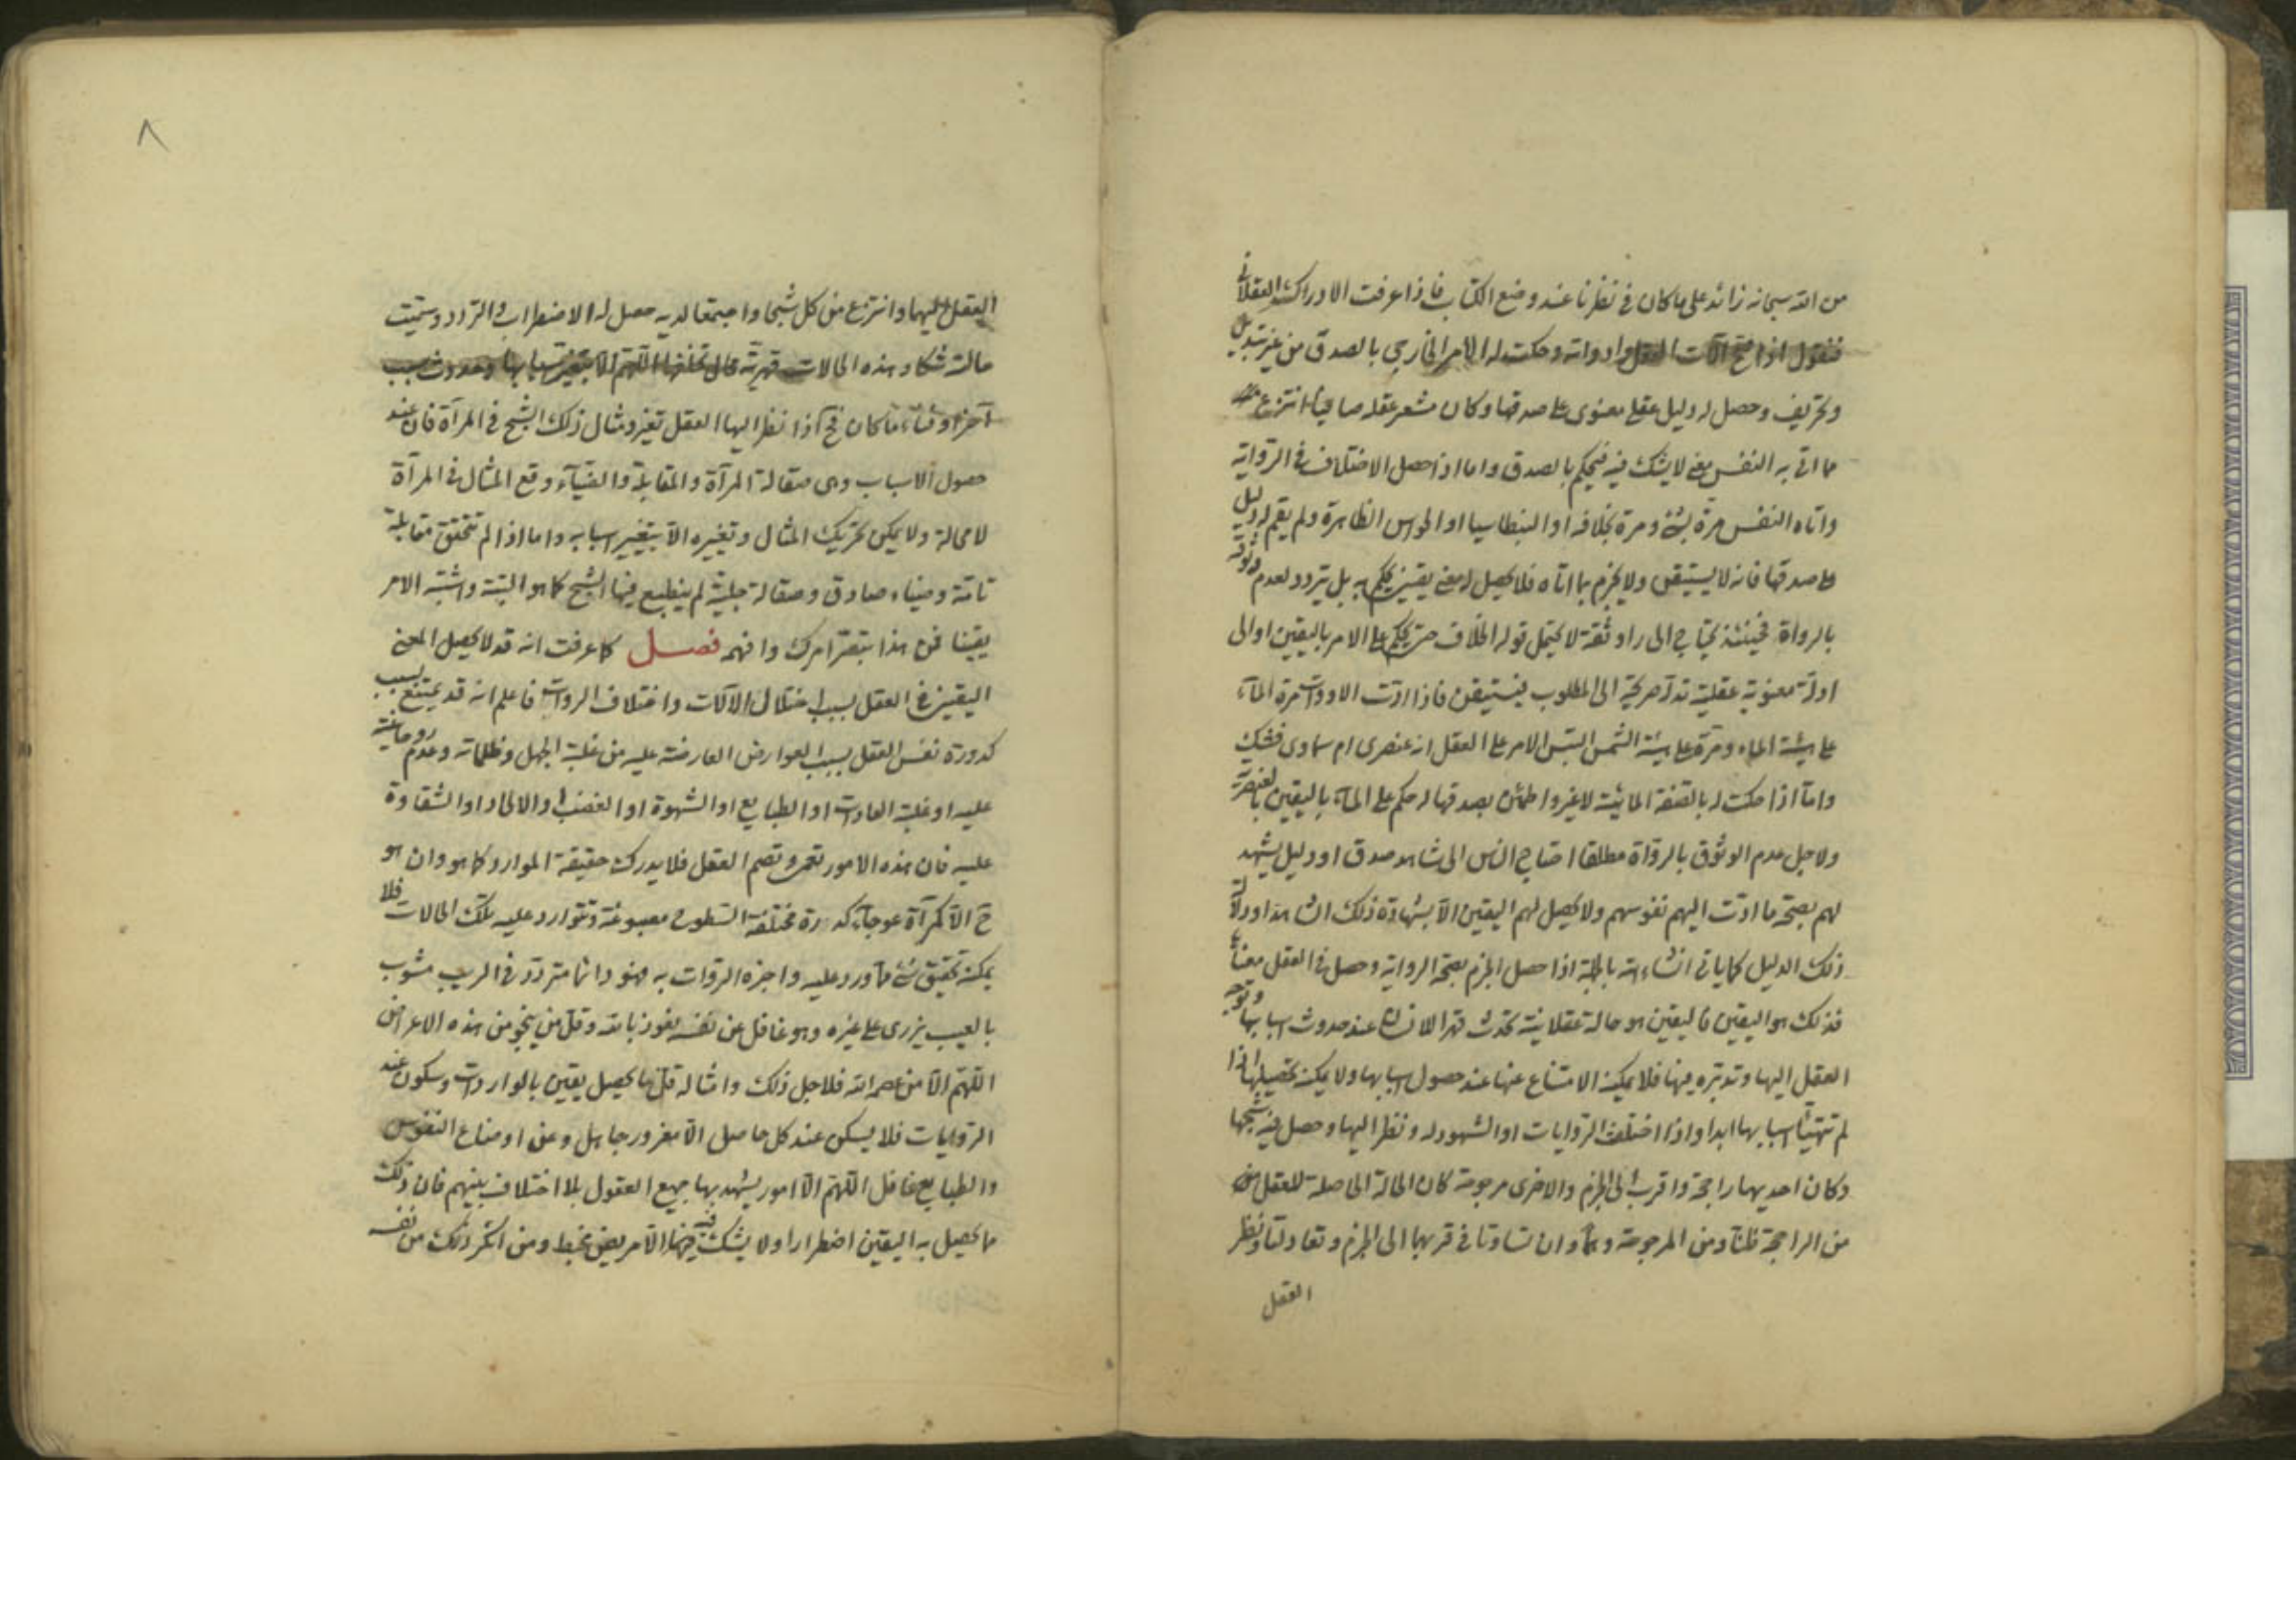 من الله سبحانه زائد على ما كان في نظرنا عند وضع الكتاب فاذا عرفت الادراكات العقلاني
فنقول اذا صح آلات العقل وادواته وحكت له الامر الخارجي بالصدق من غير تبديل
وتحريف وحصل له دليل عقلي معنوي على صدقها وكان مشعر عقله صافيا انتزع
ما اتى به النفس معنى لا يشك فيه فيحكم بالصدق واما اذا حصل الاختلاف في الرواية
واتاه النفس مرة بشئ ومرة بخلافه او البنطاسيا او الحواس الظاهرة ولم يقم له دليل
على صدقها فانه لا يستيقن ولا يجزم بما اتاه فلا يحصل له معنى يقين يحكم به بل يتردد لعدم وثوقه
بالرواة فحينئذ يحتاج الى راو ثقة لا يحتمل قوله الخلاف حتى يحكم على الامر باليقين او الى
ادلة معنوية عقلية تدله صريحة الى المطلوب فيستيقن فاذا ادت الادوات مرة الماء
على هيئة الماء ومرة على هيئة الشمس التبس الامر على العقل انه عنصري ام سماوي فشك
واما اذا حكت له بالصفة المائية لا غير واطمئن بصدقها له حكم على الماء باليقين بالعنصرية
ولاجل عدم الوثوق بالرواة مطلقا احتاج الناس الى شاهد صدق او دليل يشهد
لهم بصحة ما ادت اليهم نفوسهم ولا يحصل لهم اليقين الا بشهادة ذلك الشاهد او دلالة
ذلك الدليل كما ياتي انشاء الله بالجملة اذا حصل الجزم بصحة الرواية وحصل في العقل معناها
فذلك هو اليقين فاليقين هو حالة عقلانية تحدث قهرا للانسان عند حدوث اسبابها وتوجه
العقل اليها وتدبره فيها فلا يمكنه الامتناع عنها عند حصول اسبابها ولا يمكنه تحصيلها اذا
لم تتهيأ اسبابها ابدا واذا اختلفت الروايات او الشهود له ونظر اليها وحصل فيه شبحها
وكان احديهما راجحة واقرب الى الجزم والاخرى مرجوحة كان الحالة الحاصلة للعقل من
من الراجحة ظنا ومن المرجوحة وهما وان تساوتا في قربهما الى الجزم وتعادلتا ونظر
العقل
٨
العقل اليهما وانتزع من كل شبحا واجتمعا لديه حصل له الاضطراب والتردد وسميت
حالته شكا وهذه الحالات قهرية محال تخلفها اللهم الا بتغير اسبابها وحدوث سبب
آخر او فناء ما كان فح اذا نظر اليها العقل تغير ومثال ذلك الشبح في المرآة فان عند
حصول الاسباب وهي صقالة المرآة والمقابلة والضياء وقع المثال في المرآة
لا محالة ولا يمكن تحريك المثال وتغييره الا بتغيير اسبابه واما اذا لم تتحقق مقابلة
تامة وضياء صادق وصقالة جلية لم ينطبع فيها الشبح كما هو البتة واشتبه الامر
يقينا فمن هذا تبصر امرك وافهم فصل كما عرفت انه قد لا يحصل المعنى
اليقين في العقل بسبب اختلال الآلات واختلاف الروات فاعلم انه قد يمتنع بسبب
كدورة نفس العقل بسبب العوارض العارضة عليه من غلبة الجهل وظلماته وعدم روحانية
عليه او غلبة العادات او الطبايع او الشهوة او الغضب او الالحاد او الشقاوة
عليه فان هذه الامور تعمى وتصم العقل فلا يدرك حقيقة الموارد كما هو وان هو
ح الا كمرآة عوجاء كدرة مختلفة السطوح مصبوغة وتتوارد عليه تلك الحالات فلا
يمكنه تحقيق شئ مما ورد عليه واخبره الروات به فهو دائما متردد في الريب مشوب
بالعيب يزرى على غيره وهو غافل عن نفسه نعوذ بالله وقل من ينجو من هذه الاعراض
اللهم الا من عصمه الله فلاجل ذلك وامثاله قل ما يحصل يقين بالواردات وسكون عند
الروايات فلا يسكن عند كل حاصل الا مغرور جاهل وعن اوضاع النفوس
والطبايع غافل اللهم الا امور يشهد بها جميع العقول بلا اختلاف بينهم فان ذلك
ما يحصل به اليقين اضطرارا ولا يشك فيه الا مريض مخبط ومن انكر ذلك من نفسه